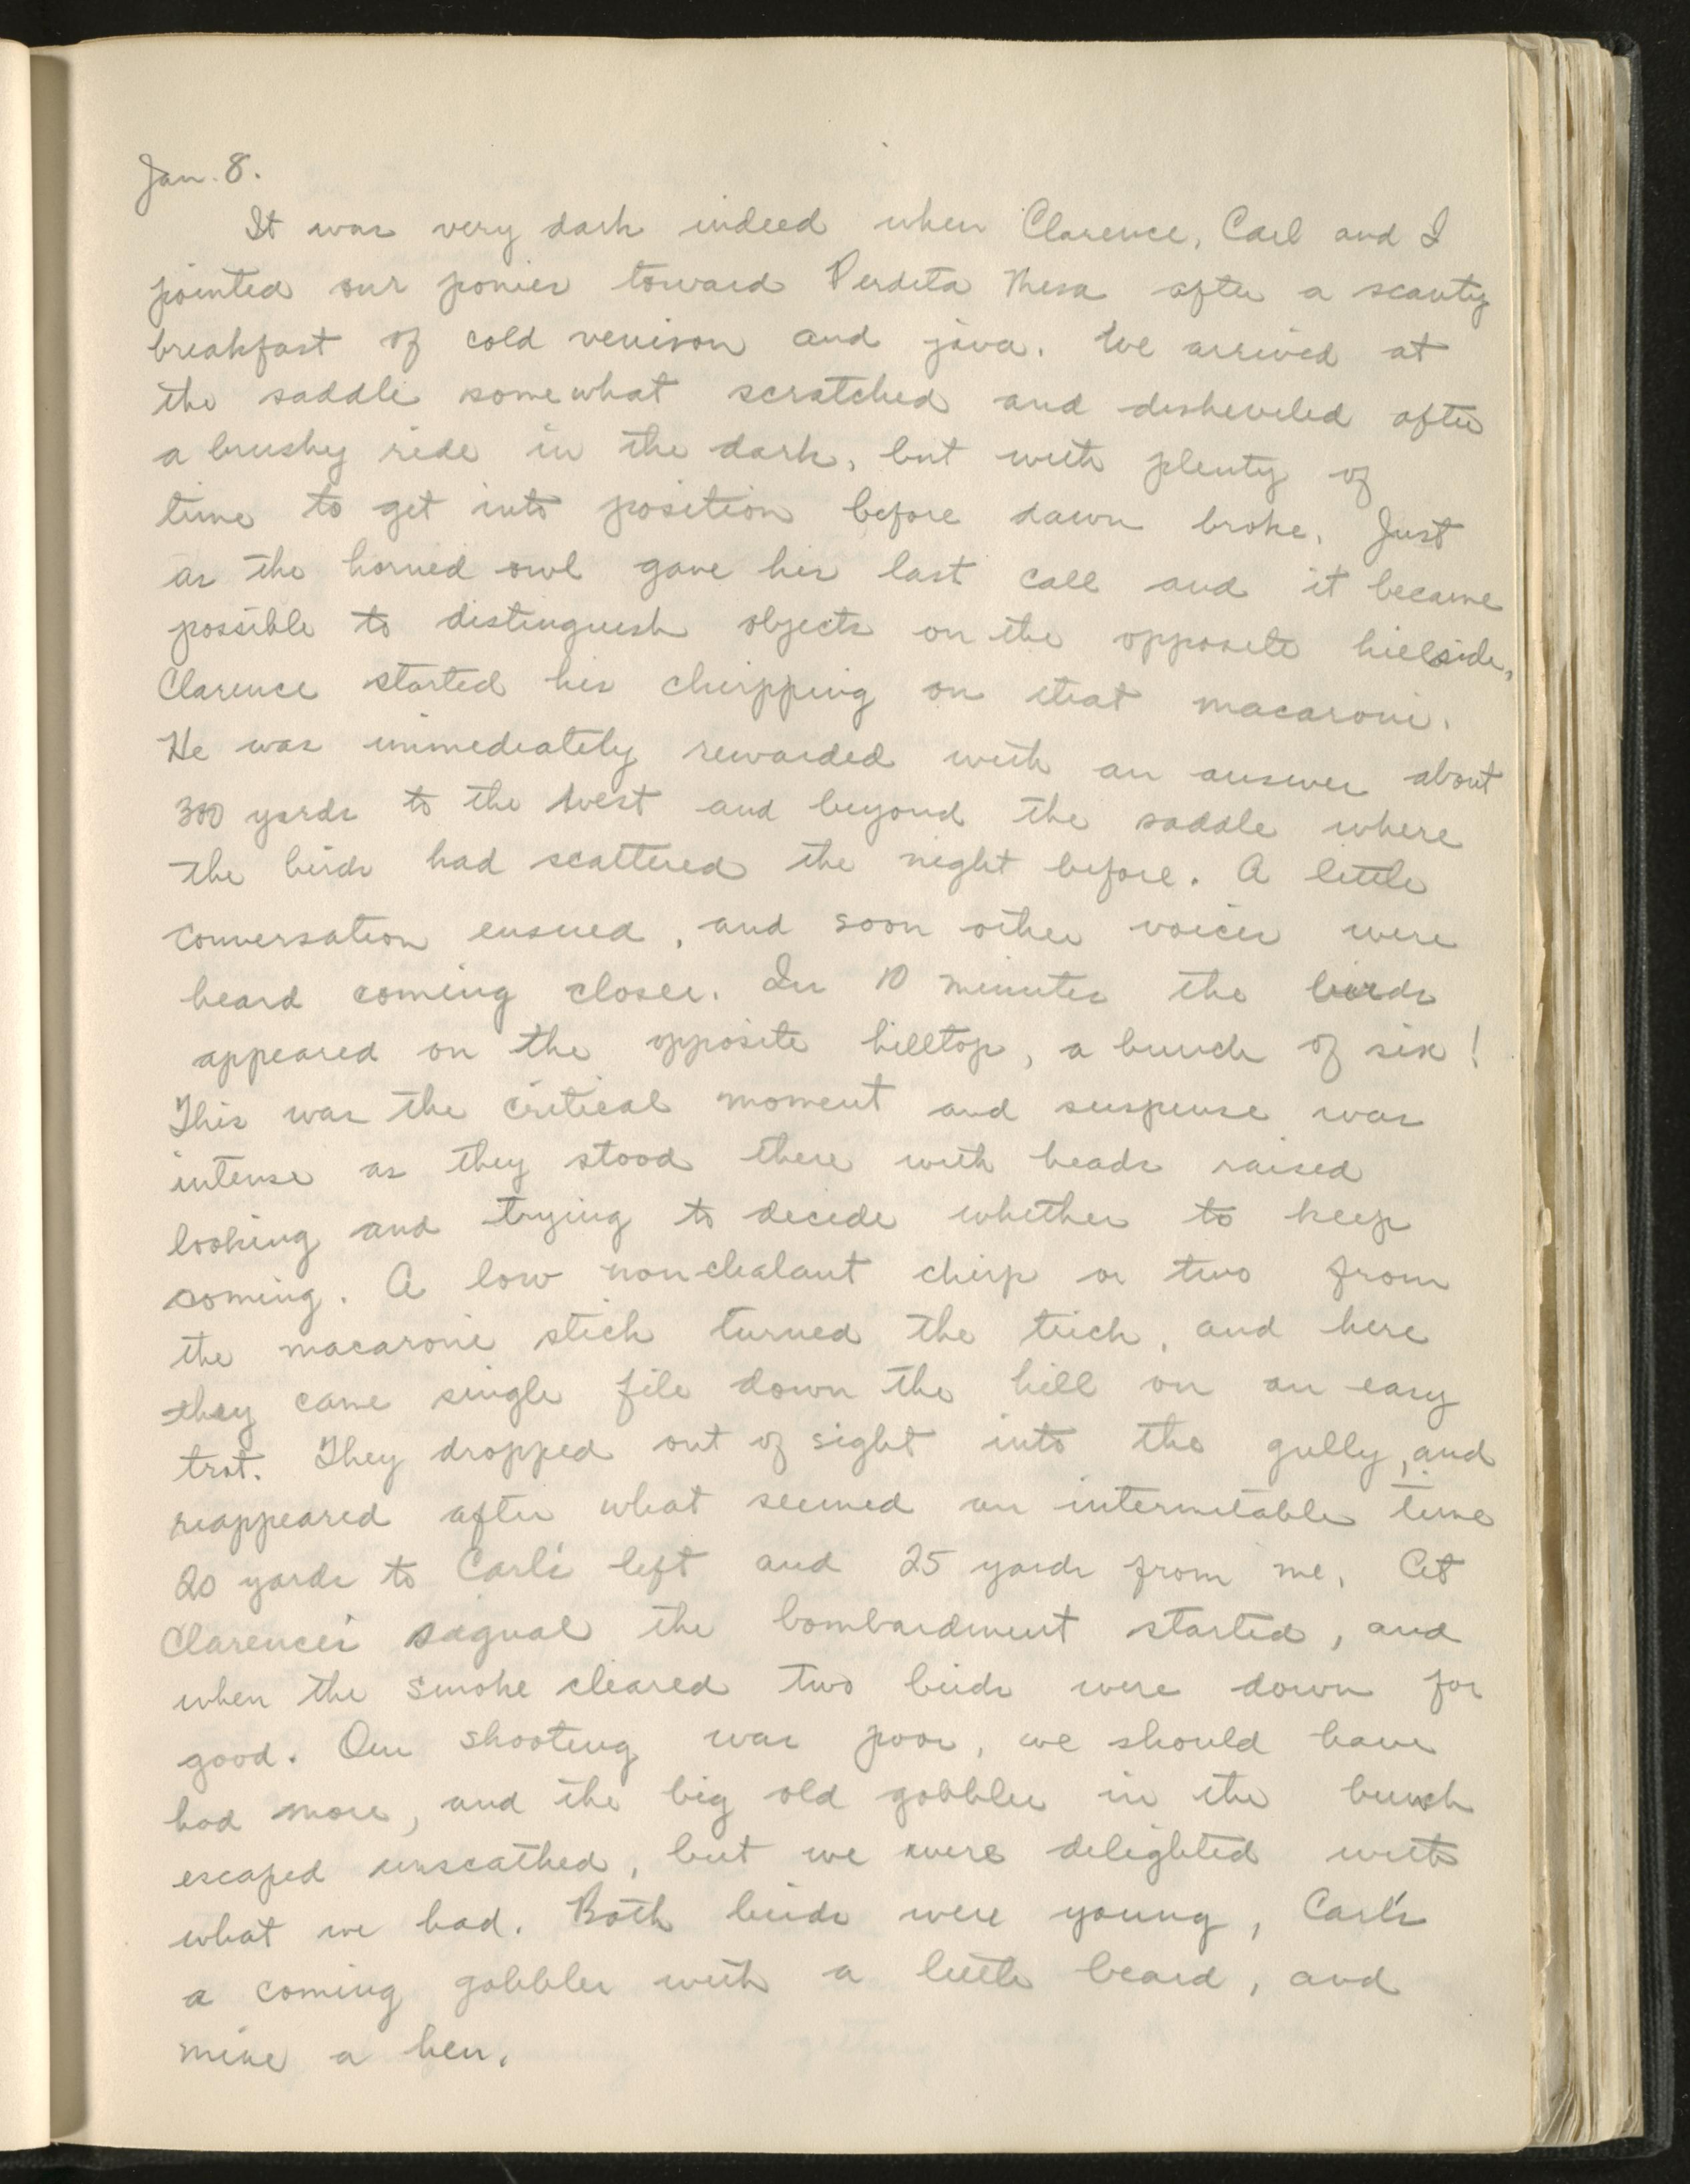 Jan. 8.
It was very dark indeed when Clarence, Carl and I
pointed our ponies toward Perdita Mesa after a scanty
breakfast of cold venison and java. We arrived at
the saddle somewhat scratched and disheveled after
a brushy ride in the dark, but with plenty of
time to get into position before dawn broke. Just
as the horned owl gave his last call and it became
possible to distinguish objects on the opposite hillside,
Clarence started his chirpping on that macaroni.
He was immediately rewarded with an answer about
300 yards to the West and beyond the saddle where
the birds had scattered the night before. A little
conversation ensued, and soon other voices were
heard coming closer. In 10 minutes the birds
appeared on the opposite hilltop, a bunch of six!
This was the critical moment and suspense was
intense as they stood there with heads raised
looking and trying to decide whether to keep
coming. A low nonchalant chirp or two from
the macaroni stick turned the trick, and here
they came single file down the hill on an easy
trot. They dropped out of sight into the gully, and
reappeared after what seemed an intermitable time
20 yards to Carl's left and 25 yards from me. At
Clarence's signal the bombardment started, and
when the smoke cleared two birds were down for
good. Our shooting was poor, we should have
had more, and the big old gobbler in the bunch
escaped unscathed, but we were delighted with
what we had. Both birds were young, Carl's
a coming gobbler with a little beard, and
mine a hen.